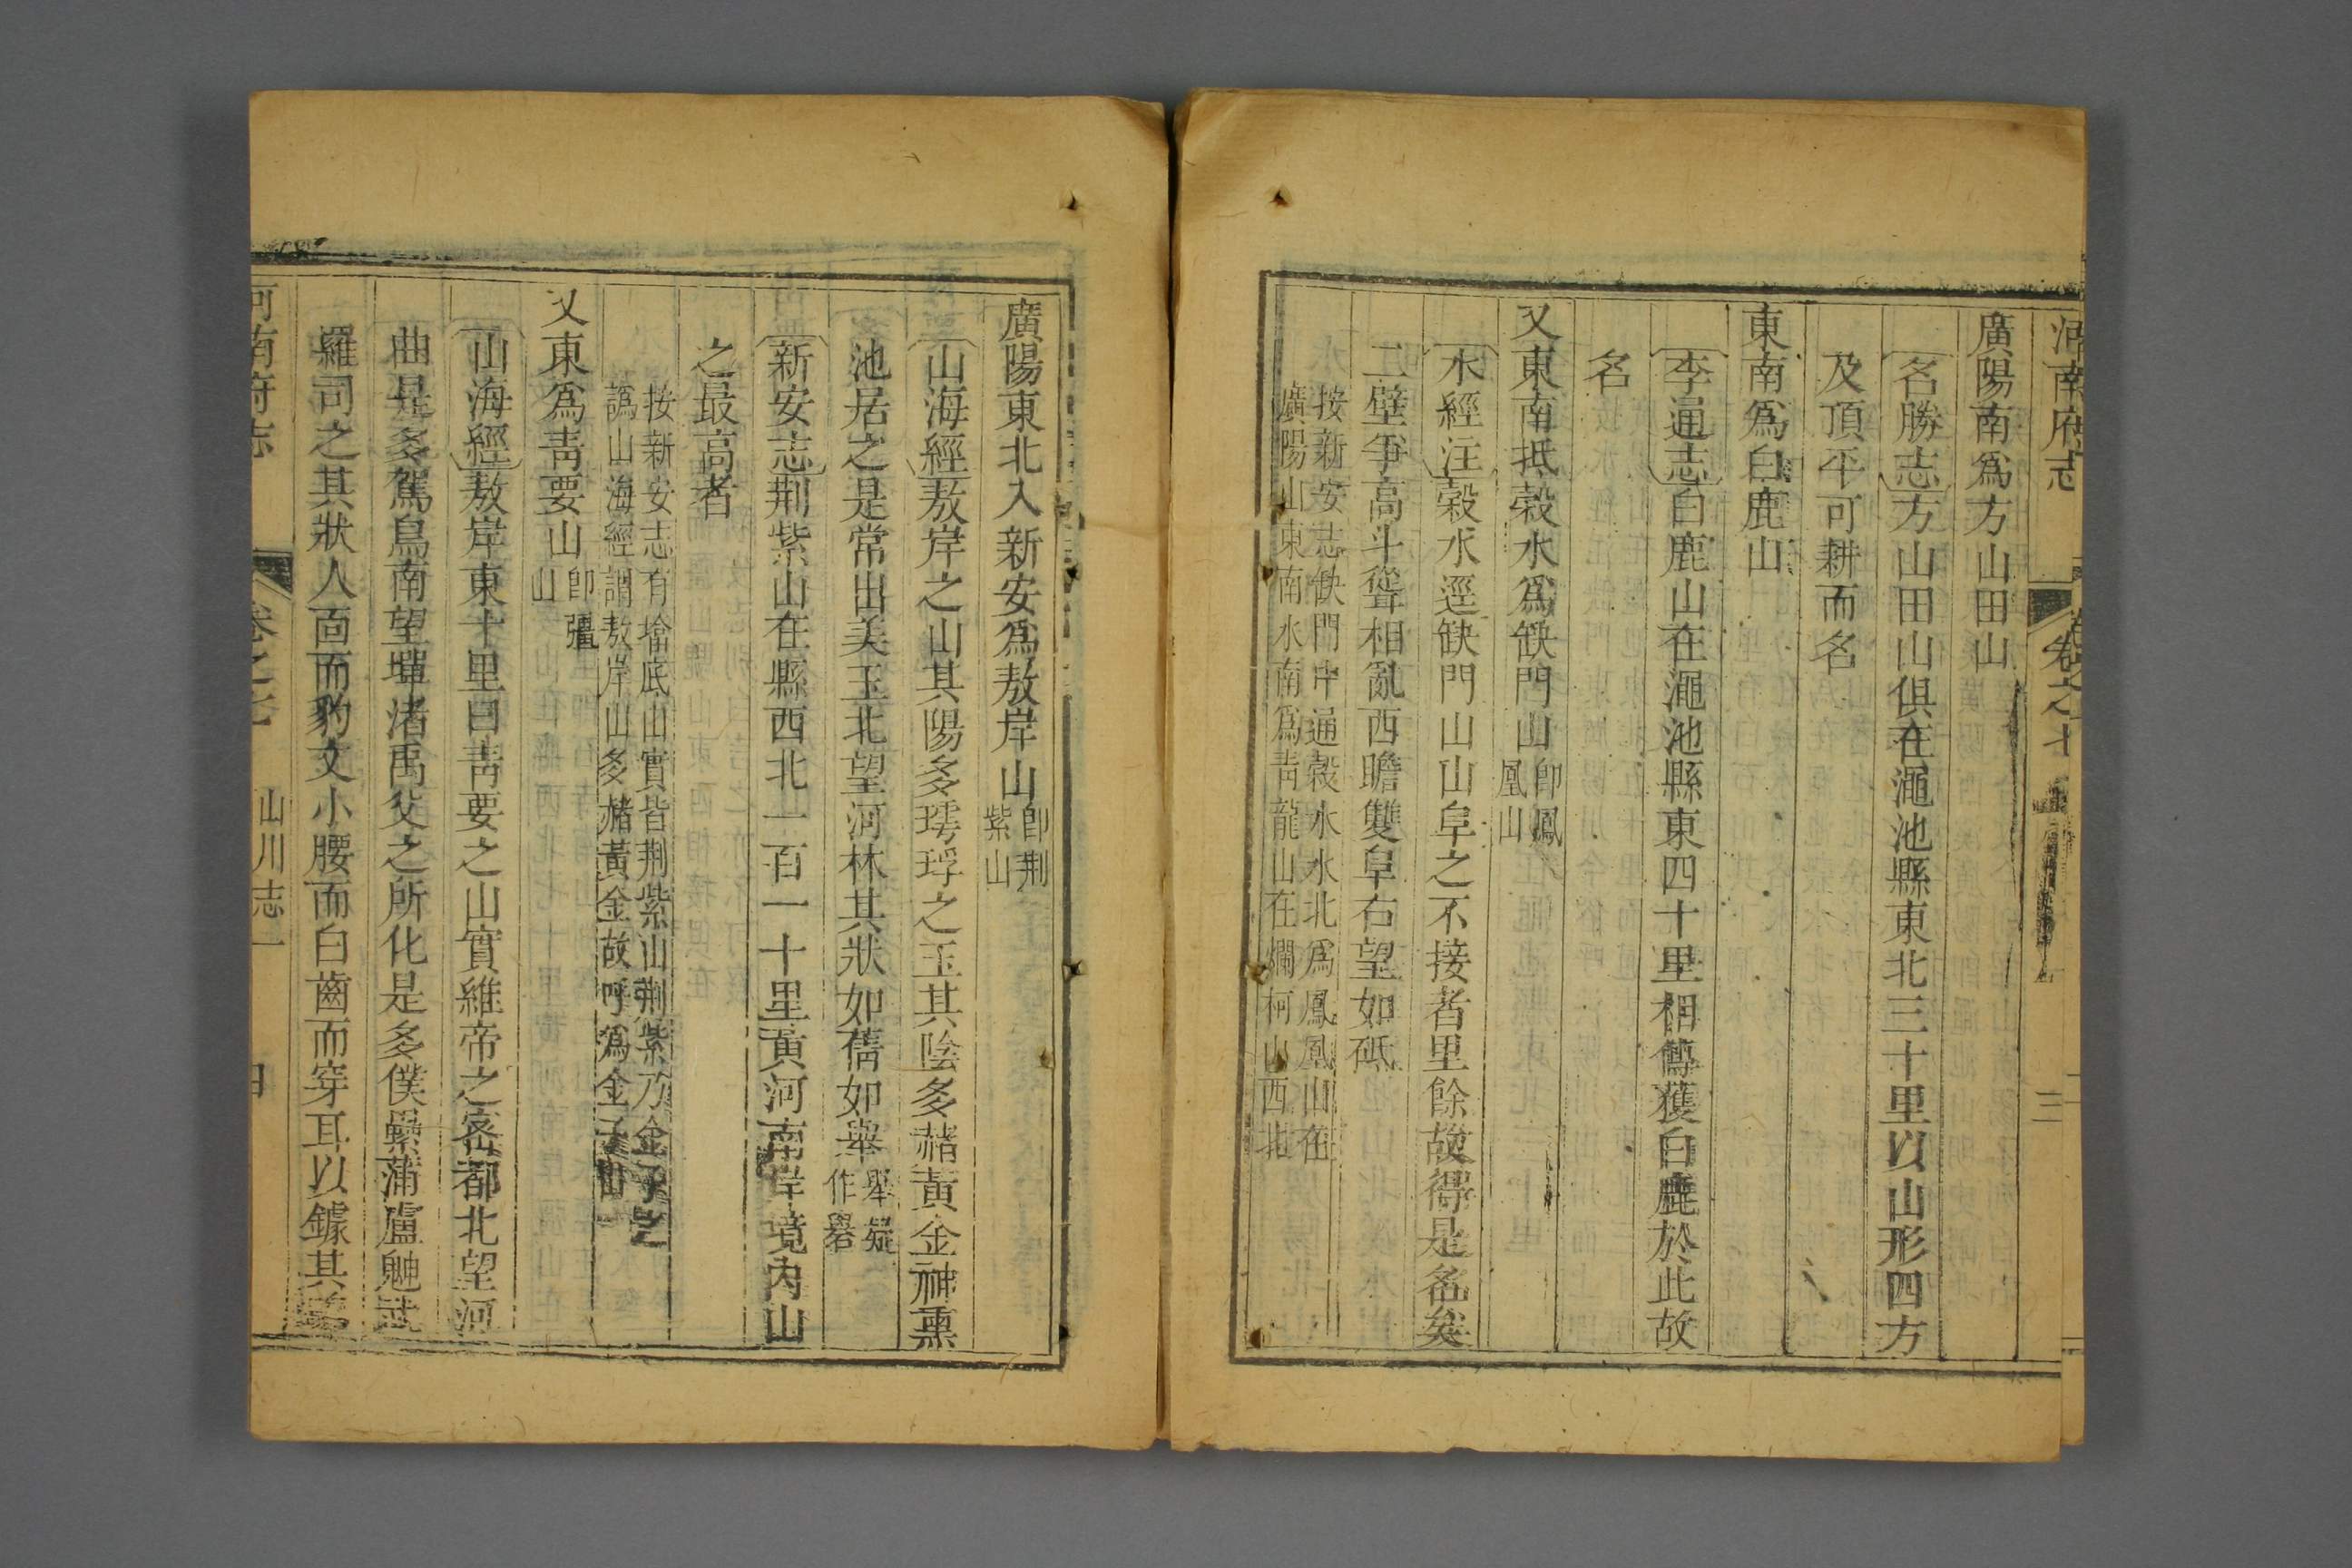 河南府志
卷之七
三
廣陽南爲方山田山
名勝志方山田山俱在澠池縣東北三十里以山形四方
及頂平可耕而名
東南爲白鹿山
李通志白鹿山在澠池縣東四十里相傳獲白鹿於此故
名
又東南抵穀水爲缺門山卽鳳凰山
水經注穀水逕缺門山山阜之不接者里餘故得是名矣
二壁爭高斗聳相亂西瞻雙阜右望如砥
按新安志缺門中通穀水水北爲鳳凰山在
廣陽山東南水南爲靑龍山在爛柯山西北
廣陽東北入新安爲敖岸山卽荆紫山
山海經敖岸之山其陽多㻬琈之玉其陰多赭黃金神熏
池居之是常出美玉北望河林其狀如蒨如舉舉疑作櫸
新安志荆紫山在縣西北一百一十里黃河南岸境內山
之最高者
按新安志有堬底山實皆荆紫山荆紫乃金子之
譌山海經謂敖岸山多赭黃金故呼爲金子山
又東爲靑要山卽彊山
山海經敖岸東十里曰靑要之山實維帝之密都北望河
曲是多駕鳥南望墠渚禹父之所化是多僕纍蒲盧䰠武
羅司之其狀人面而豹文小腰而白齒而穿耳以鐻其
河南府志
卷之七
山川志一
四